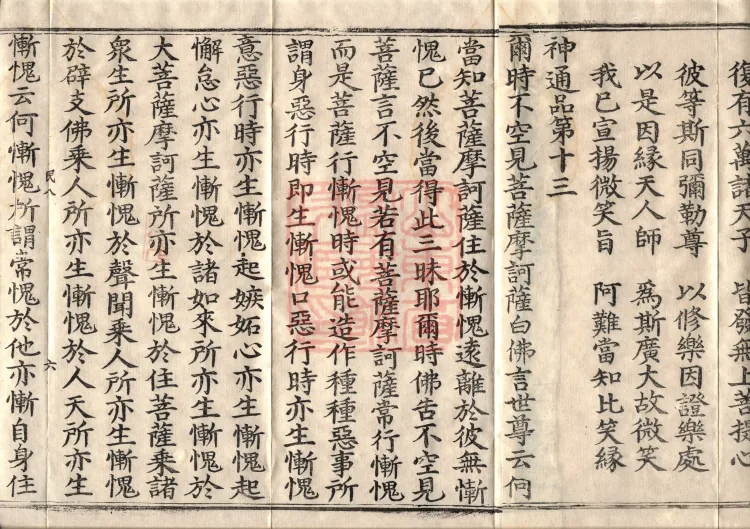 復有六萬諸天子　皆發無上菩提心
彼等斯同彌勒尊　以修樂因證樂處
以是因緣天人師　為斯廣大故微笑
我已宣揚微笑旨　阿難當知比笑緣
神通品第十三
爾時不空見菩薩摩訶薩白佛言世尊云何
當知菩薩摩訶薩住於慚愧遠離於彼無慚
愧已然後當得此三昧耶爾時佛告不空見
菩薩言不空見若有菩薩摩訶薩常行慚愧
而是菩薩行慚愧時或能造作種種惡事所
謂身惡行時即生慚愧口惡行時亦生慚愧
意惡行時亦生慚愧起嫉妬心亦生慚愧起
懈怠心亦生慚愧於諸如來所亦生慚愧於
大菩薩摩訶薩所亦生慚愧於住菩薩乘諸
衆生所亦生慚愧於聲聞乘人所亦生慚愧
於辟支佛乘人所亦生慚愧於人天所亦生
六
慚愧云何慚愧所謂常愧於他亦慚自身住